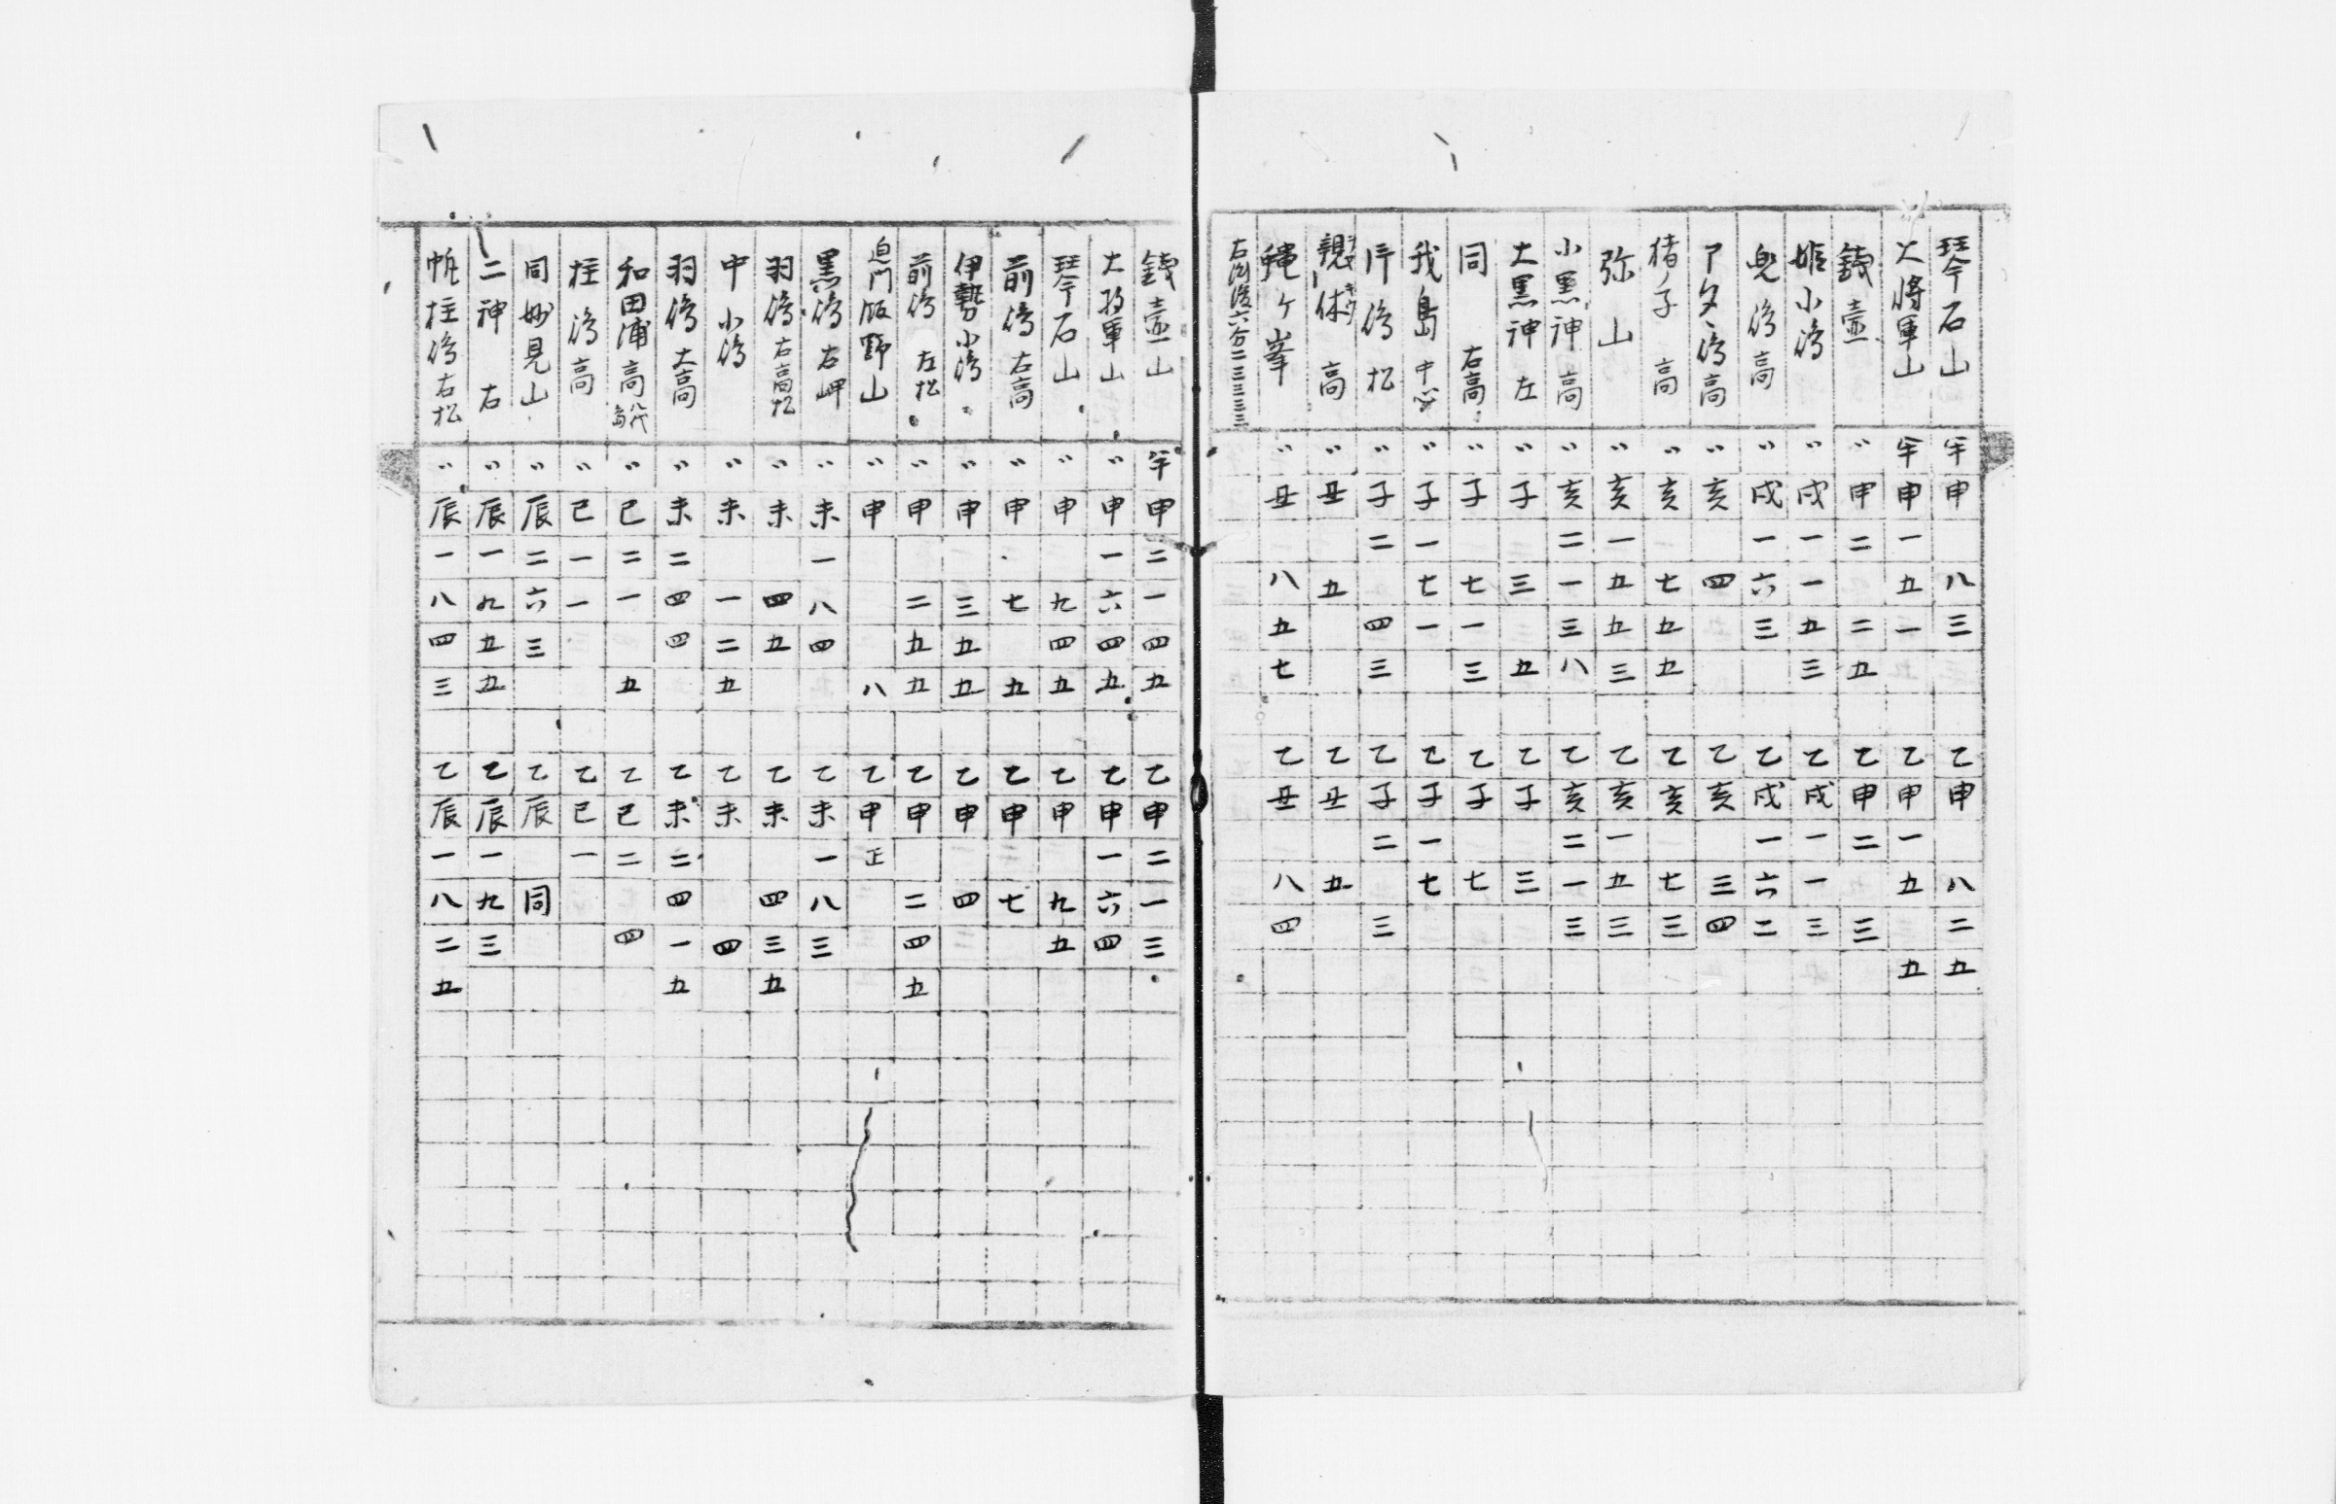 琴石山 午申八三 乙申八二五
大将軍山 午申一五一 乙申一五五
銭壷 〃申二二五 乙申二三
姫小島 〃戌一一五三 乙戌一一三
兜島高 〃戌一六三 乙戌一六二
アタヽ島高 〃亥四 乙亥三四
猪ノ子 高 〃亥七五五 乙亥七三
弥山 〃亥一五五三 乙亥一五三
小黒神高 〃亥二一三八 乙亥二一三
大黒神 左 〃子三五 乙子三
同 右高 〃子七一三 乙子七
我島 中心 〃子一七一 乙子一七
片島 松 〃子二四三 乙子二三
高 〃丑五 乙丑五
ヶ峯 〃丑八五七 乙丑八四
六分二三三三三
銭壷山 午申二一四五 乙申二一三
大将軍山 〃申一六四五 乙申一六四
琴石山 〃申九四五 乙申九五
前島 右高 〃申七五 乙申七
伊勢小島 〃申三五五 乙申四
前島 左松 〃申二五五 乙申二四五
迫門飯野山 〃申八 乙申正
黒島 右岬 〃未一八四 乙未一八三
羽島 右高松 〃未四五 乙未四三五
中小島 〃未一二五 乙未四
羽島 大高 〃未二四四 乙未二四一五
和田浦高 八代島 〃巳二一五 乙巳二四
柱島高 〃巳一一 乙巳一
同妙見山 〃辰二六三 乙辰同
二神 右 〃辰一九五五 乙辰一九三
帆柱島 右松 〃辰一八四三 乙辰一八二五